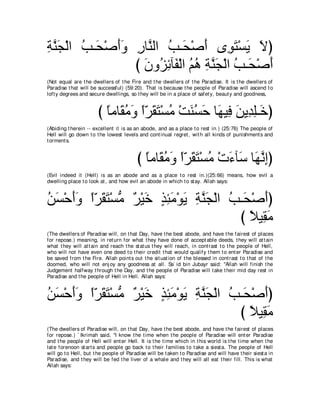 لاَ يَسْتَوِى أَصْحَـبُ النَّارِ وَأَصْحَـبُ الْجَنَّةِ
أَصْحَـبُ الْجَنَّةِ هُمُ الْفَآئِزُونَ )
(Not equal are the dwellers of the Fire and the dwellers of the Paradise. It is the dwellers of
Paradise that will be successful) (59:20). That is because the people of Paradise will ascend to
lofty degrees and secure dwellings, so they will be in a place of safety, beauty and goodness,
(خَـلِدِينَ فِيهَا حَسُنَتْ مُسْتَقَرّاً وَمُقَاماً )
(Abiding therein -- excellent it is as an abode, and as a place to rest in.) (25:76) The people of
Hell will go down to the lowest levels and continual regret, with all kinds of punishments and
torments.
(إِنَّهَا سَآءَتْ مُسْتَقَرّاً وَمُقَاماً )
(Evil indeed it (Hell) is as an abode and as a place to rest in.)(25:66) means, how evil a
dwelling place to look at, and how evil an abode in which to stay. Allah says:
(أَصْحَـبُ الْجَنَّةِ يَوْمَئِذٍ خَيْرٌ مُّسْتَقَرّاً وَأَحْسَنُ
مَقِيلاً )
(The dwellers of Paradise will, on that Day, have the best abode, and have the fairest of places
for repose.) meaning, in return for what they have done of acceptable deeds, they will attain
what they will attain and reach the status they will reach, in contrast to the people of Hell,
who will not have even one deed to their credit that would qualify them to enter Paradise and
be saved from the Fire. Allah points out the situation of the blessed in contrast to that of the
doomed, who will not enjoy any goodness at all. Sa`id bin Jubayr said: "Allah will finish the
Judgement halfway through the Day, and the people of Paradise will take their mid day rest in
Paradise and the people of Hell in Hell. Allah says:
(أَصْحَـبُ الْجَنَّةِ يَوْمَئِذٍ خَيْرٌ مُّسْتَقَرّاً وَأَحْسَنُ
مَقِيلاً )
(The dwellers of Paradise will, on that Day, have the best abode, and have the fairest of places
for repose.) `Ikrimah said, "I know the time when the people of Paradise will enter Paradise
and the people of Hell will enter Hell. It is the time which in this world is the time when the
late forenoon starts and people go back to their families to take a siesta. The people of Hell
will go to Hell, but the people of Paradise will be taken to Paradise and will have their siesta in
Paradise, and they will be fed the liver of a whale and they will all eat their fill. This is what
Allah says: